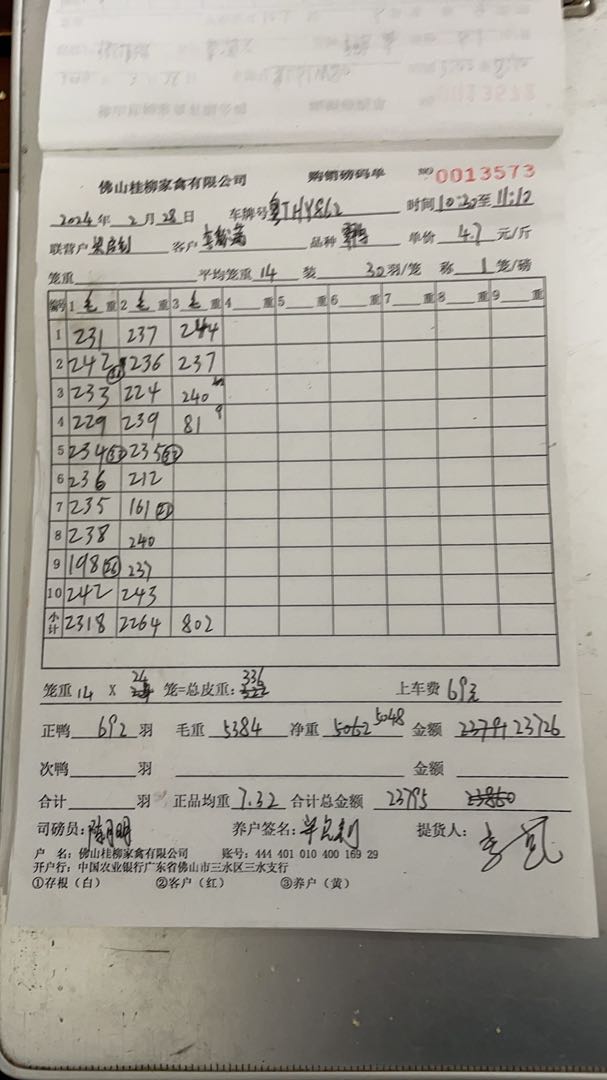 佛山桂柳家禽有限公司 购销磅码单 NO 0013573
2024年2月28日 车牌号 粤THY862 时间10:20至11:10
联营户 客户 品种 单价 4.7 元/斤
笼重 平均笼重 14 装 30 羽/笼 称 1 笼/磅
编号 1 毛 重 2 毛 重 3 毛 重 4 重 5 重 6 重 7 重 8 重 9 重
1 231 237 244
2 242 236 237
3 233 224 240
4 229 239 81 9
5 234 235
6 236 212
7 235 161
8 238 240
9 198 237
10 242 243
小计 2318 2264 802
笼重 14 X 24 笼=总皮重: 336 上车费 69元
正鸭 692 羽 毛重 5384 净重 5062 5048 金额 23791 23726
次鸭 羽 金额
合计 羽 正品均重 7.32 合计总金额 23795 23860
司磅员: 养户签名: 提货人:
户 名: 佛山桂柳家禽有限公司 账号: 444 401 010 400 169 29
开户行: 中国农业银行广东省佛山市三水区三水支行
①存根(白) ②客户(红) ③养户(黄)